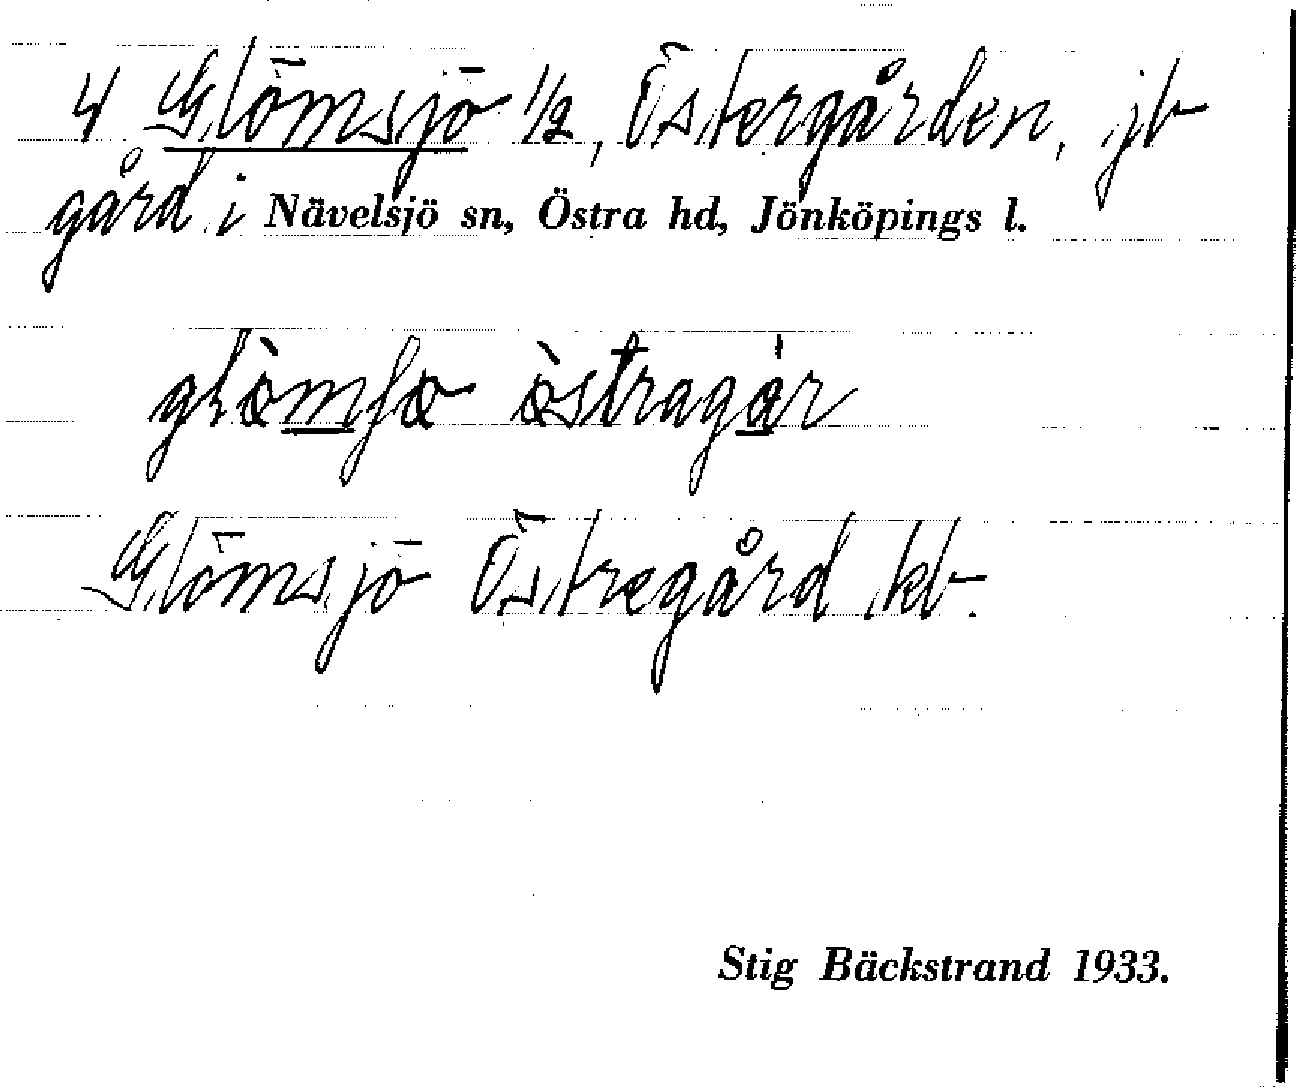 4 Glömsjö 1/2, Östergården, jb
gård i Nävelsjö sn, Östra hd, Jönköpings l.
Glömsjö Östregård kb.
Stig Bäckstrand 1933.